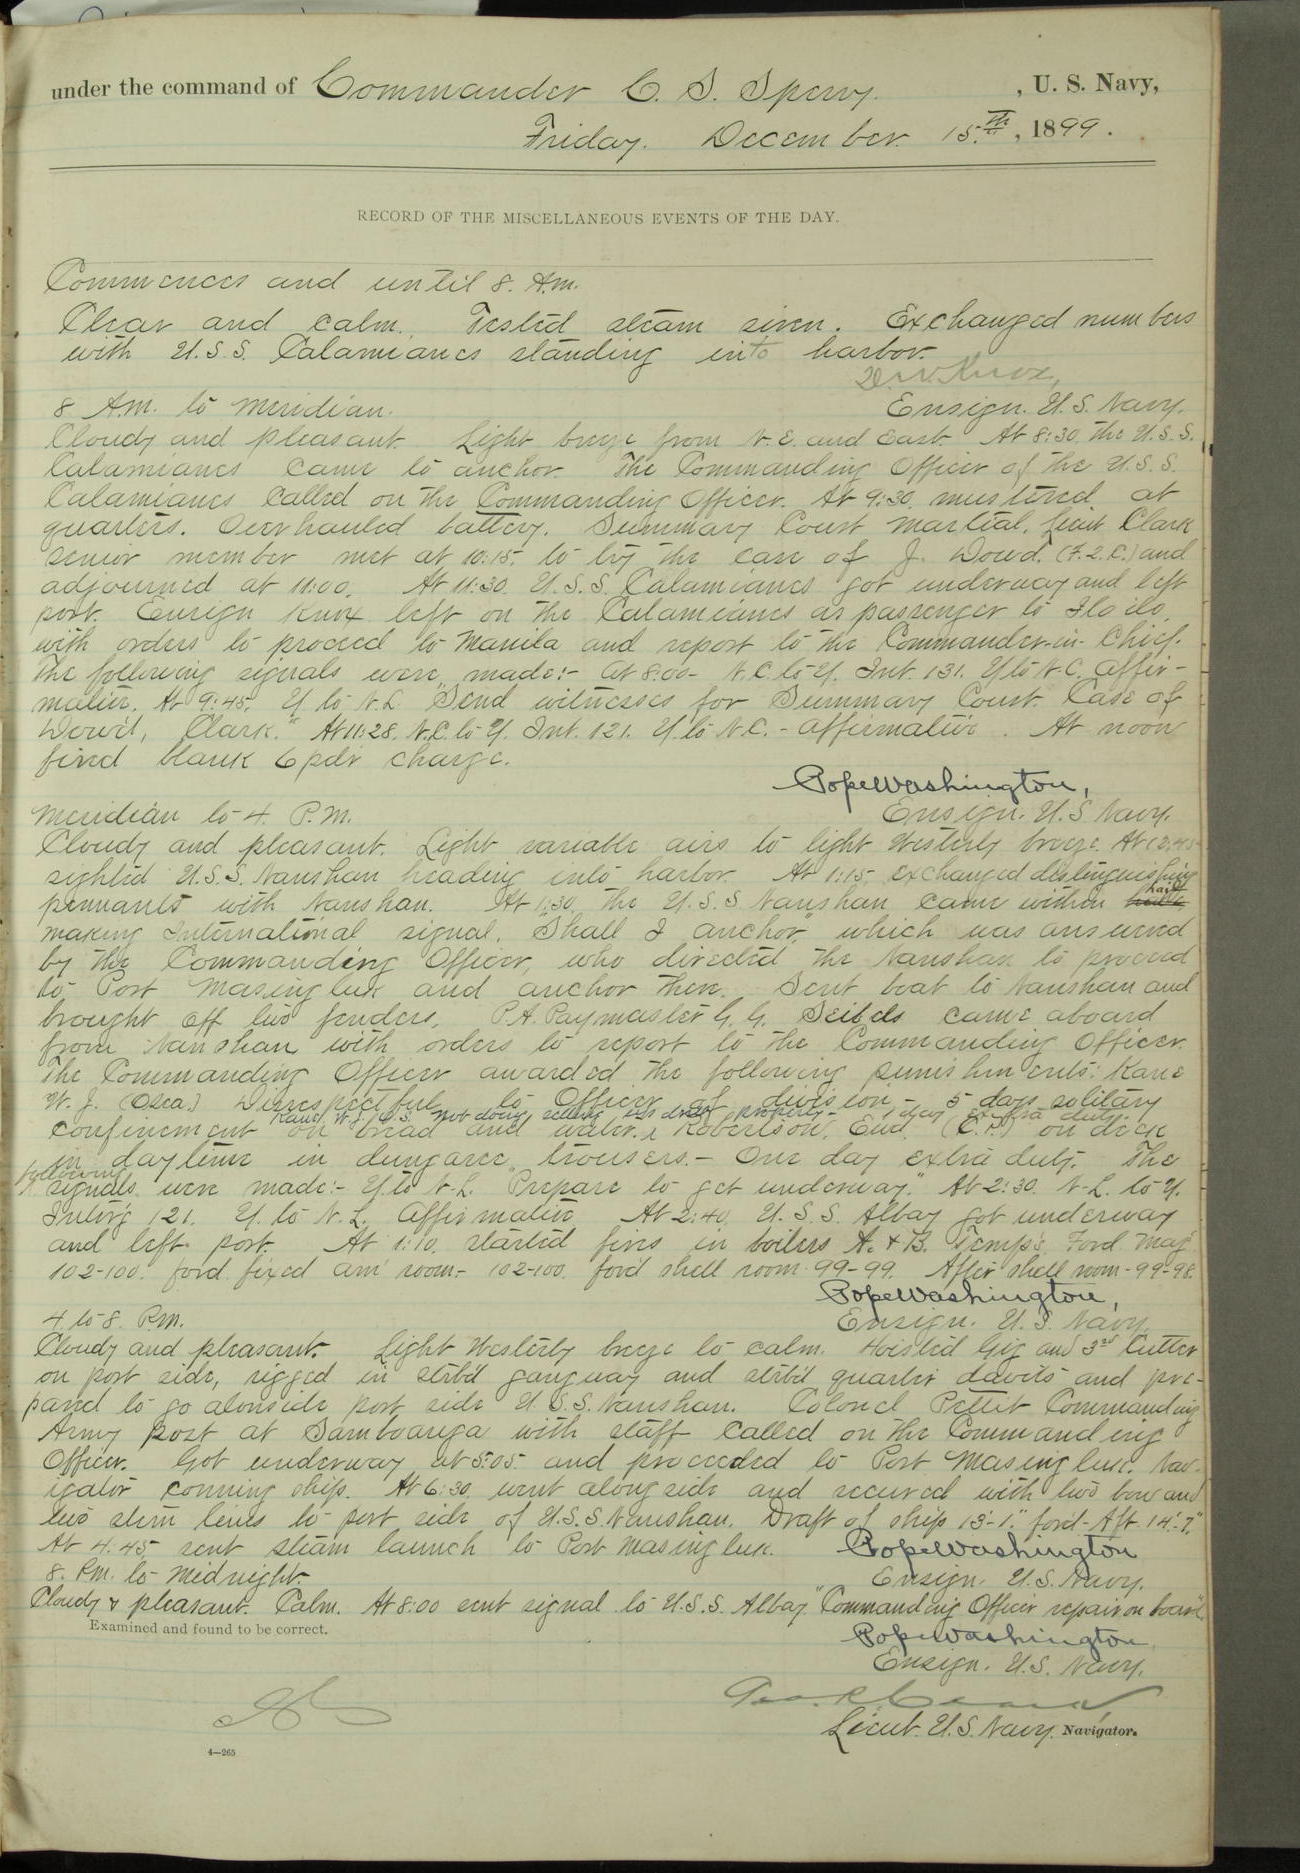 under the command of Commander C. S. Sperry. , U. S. Navy,
Friday. December. 15.th , 1899.
RECORD OF THE MISCELLANEOUS EVENTS OF THE DAY.
Commences and until 8. A.m.
Clear and calm. Tested steam siren. Exchanged numbers
with U.S.S. Calamianes standing into harbor.
D.W. Knox,
Ensign. U.S. Navy.
8 A.m. to meridian.
Cloudy and pleasant. Light breeze from N.E. and East. At 8:30 the U.S.S.
Calamianes came to anchor. The Commanding Officer of the U.S.S.
Calamianes called on the Commanding Officer. At 9:30 mustered at
quarters. Overhauled battery. Summary Court Martial, Lieut Clark
senior member met at 10:15. to try the case of J. Dowd. (F.2.C.) and
adjourned at 11:00. At 11:30. U.S.S. Calamianes got underway and left
port. Ensign Knox left on the Calamianes as passenger to Ilo ilo,
with orders to proceed to Manila and report to the Commander-in-Chief.
The following signals were made:- At 8:00- N.C. to Y. Int. 131. Y to N.C. affir-
mative. At 9:45. Y to N.L. "Send witnesses for Summary Court. Case of
Dowd, Clark." At 11:28. N.C. to Y. Int. 121. Y. to N.C. - affirmative. At noon
fired blank 6 pdr charge.
Pope Washington,
Ensign. U.S Navy.
Meridian to 4. P.M.
Cloudy and pleasant. Light variable airs to light Westerly breeze. At 12:45
sighted U.S.S. Nanshan heading into harbor. At 1:15 exchanged distinguishing
pennants with Nanshan. At 1:30 the U.S.S Nanshan came within hail
making International signal. "Shall I anchor," which was answered
by the Commanding Officer, who directed the Nanshan to proceed
to Port Masingluk and anchor there. Sent boat to Nanshan and
brought off two fenders. P.A. Paymaster G.G. Seibels came aboard
from Nanshan with orders to report to the Commanding Officer.
The Commanding Officer awarded the following punishments: Kane
W. J. (Osea.) Disrespectful to Officer of division - 5 days solitary
Kane, W. J. O.S. not doing
properly - 1 day extra duty.
confinement on bread and water. Robertson, Eud. (C.P.) on deck
in daytime in dungaree trousers. - One day extra duty. The
following
signals were made:- Y to N.L. "Prepare to get underway." At 2:30. N.L. to Y.
Interg 121. Y. to N.L. Affirmative. At 2:40. U.S.S. Albay got underway
and left port. At 1:10. started fires in boilers A. & B. Temp's. Ford Mag
102-100. for'd fixed am' room. - 102-100. for'd shell room. 99-99. After shell room - 99-98.
Pope Washington,
Ensign. U.S. Navy.
4 to 8 P.m.
Cloudy and pleasant. Light Westerly breeze to calm. Hoisted Gig and 3rd Cutter
on port side, rigged in starb'd gangway and starb'd quarter davits and pre-
pared to go alongside port side U.S.S. Nanshan. Colonel Pettit Commanding
Army post at Samboanga with staff called on the Commanding
Officer. Got underway at 5:05 and proceeded to Port Masingluk. Nav-
igator conning ship. At 6:30, went alongside and secured with two bow and
two stern lines to port side of U.S.S. Nanshan. Draft of ship 13'-1", for'd - Aft 14'-7".
At 4.45 sent steam launch to Port Masingluk.
Pope Washington
Ensign. U.S. Navy.
8. P.m. to Midnight.
Cloudy & pleasant. Calm. At 8:00 sent signal to U.S.S. Albay "Commanding Officer repair on board"
Examined and found to be correct.
Pope Washington,
Ensign. U.S. Navy.
Lieut. U.S. Navy. Navigator.
4—265